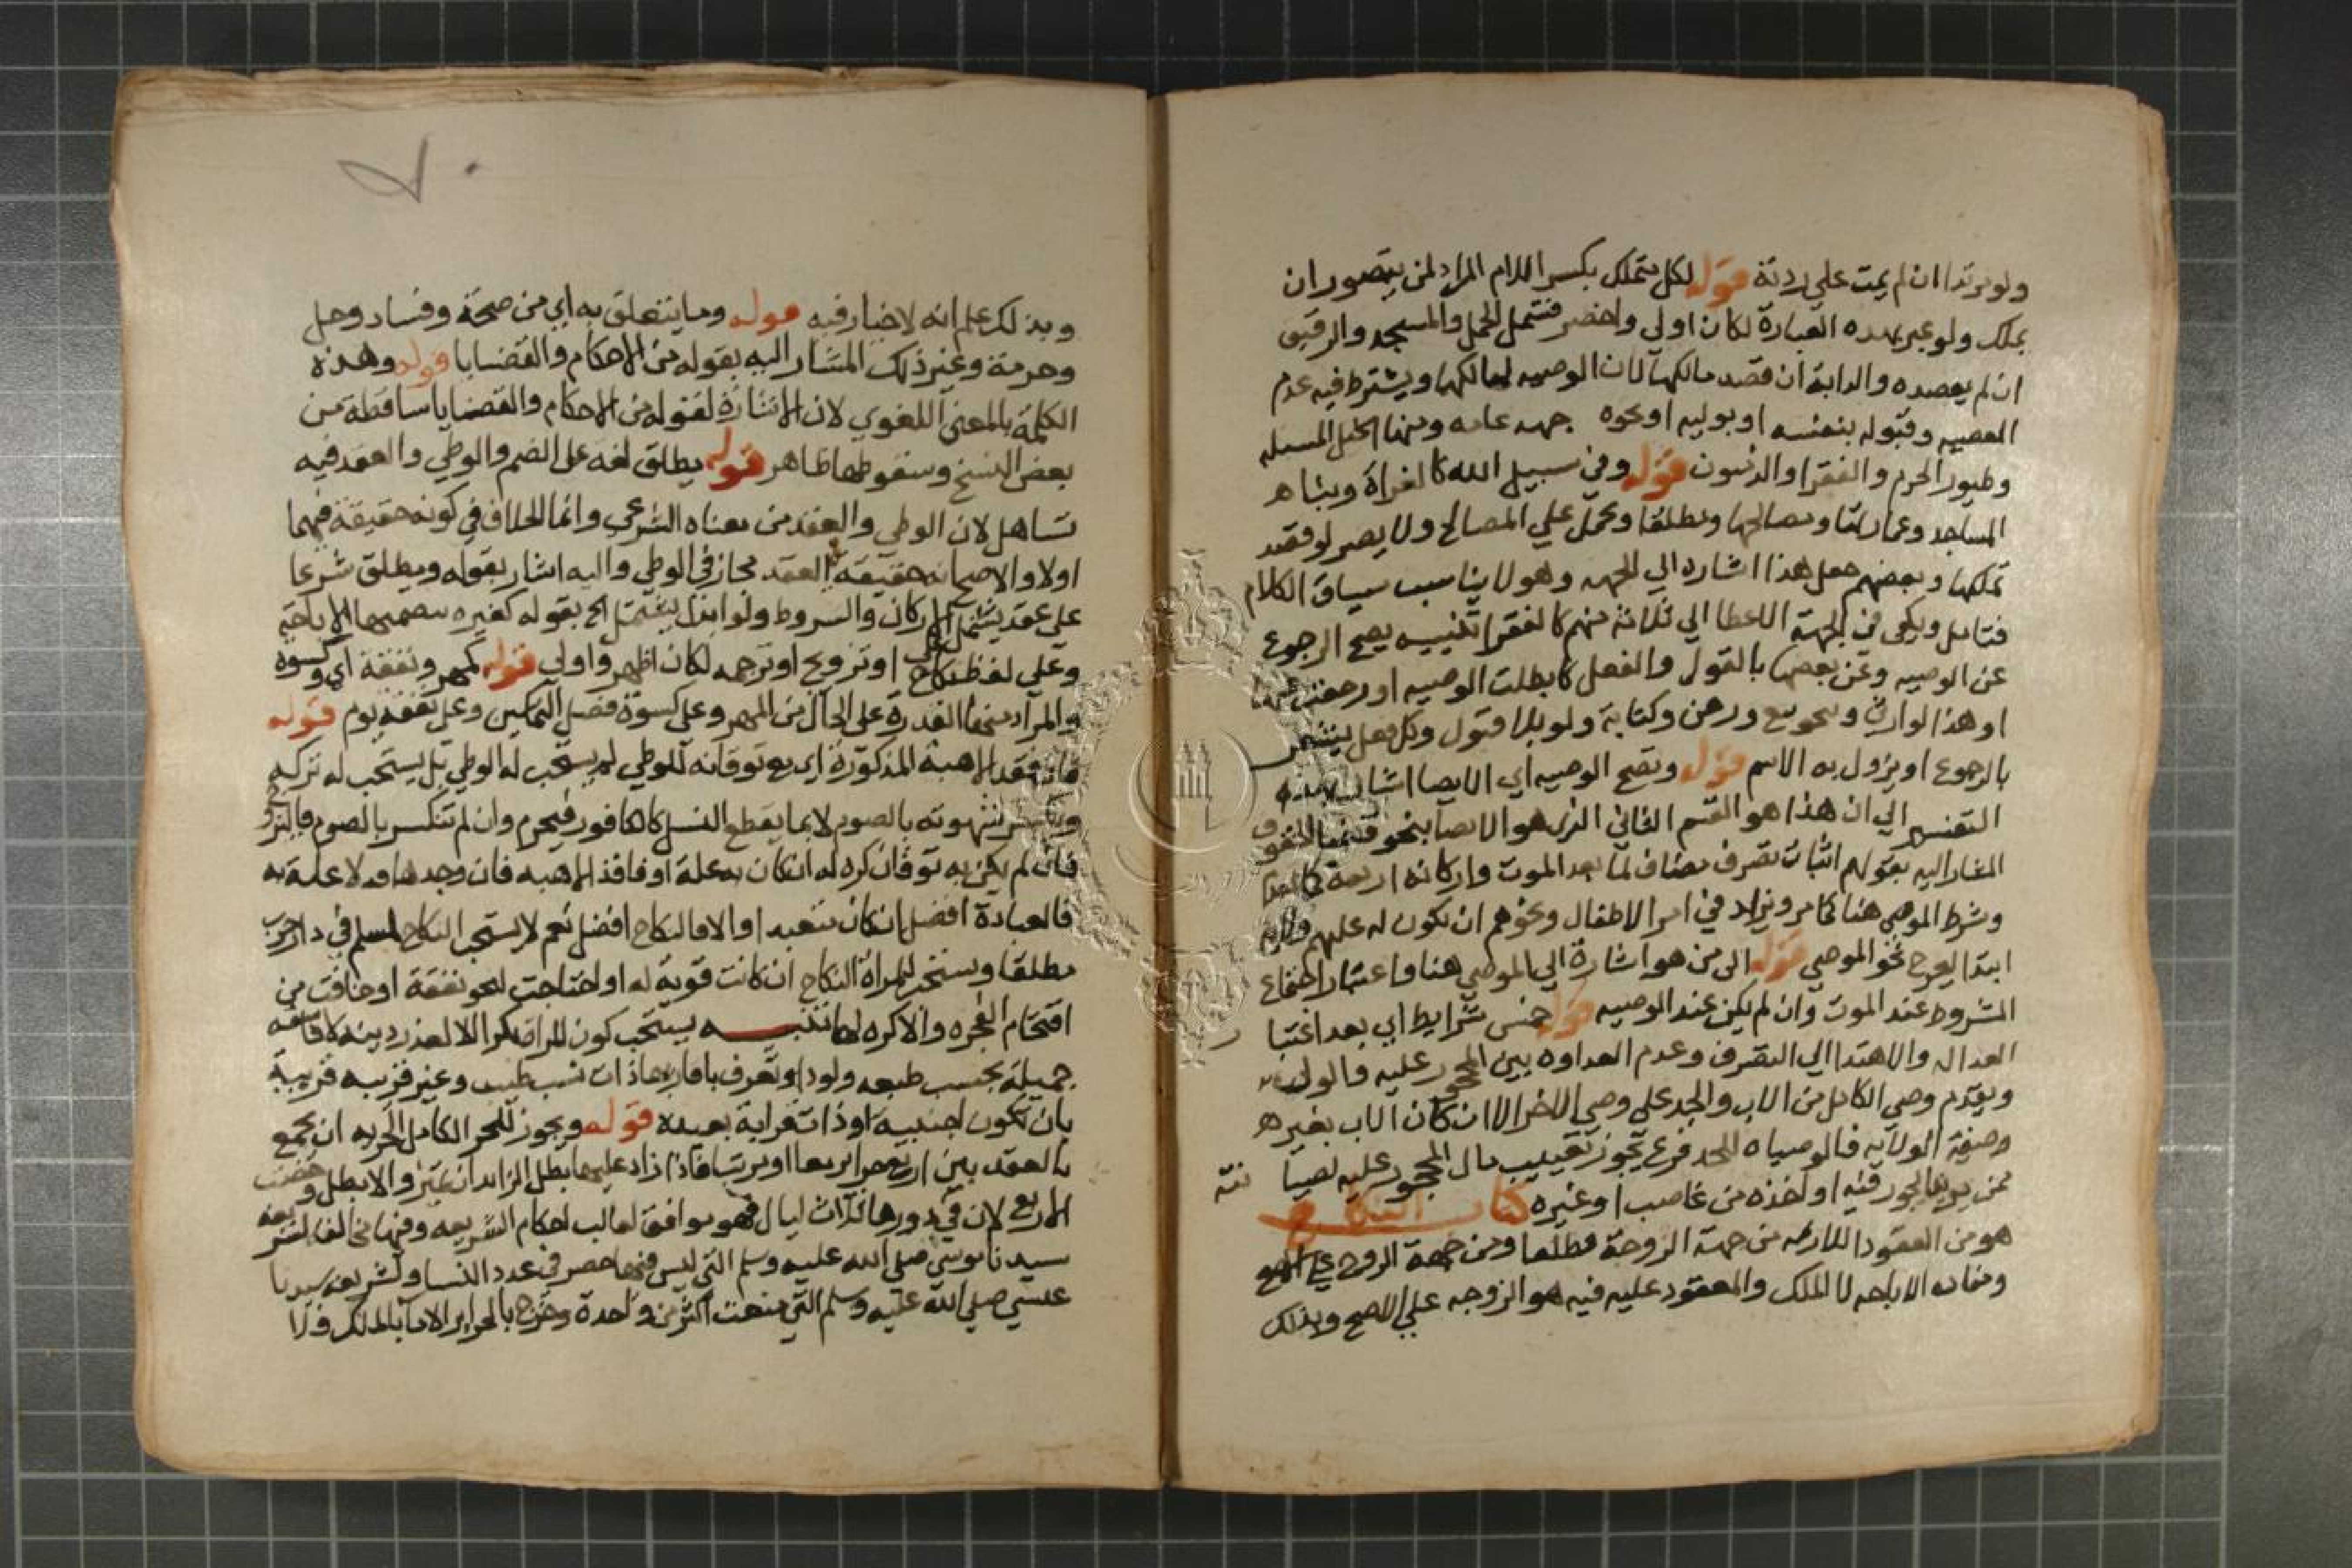 ولو مرتدا ان لم يمت علي ردته قوله لكل متملك بكسر اللام المراد لمن يتصور ان
يملك ولو عبر بهده العبارة لكان اولي واخضر فتشمل الحمل والمسجد والرقيق
ان لم يقصده والدابة ان قصد مالكها لان الوصيه لمالكها ويشترط فيه عدم
المعصيه وقبوله بنفسه او بوليه او نحوه جهه عامه ومنها الخيل المسبله
وطيور الحرم والفقرا والدنيون قوله وفي سبيل الله كالغزاة وبناء
المساجد وعمارتها ومصالحها ومطلقا وتحمل علي المصالح ولا يصر لو قصد
تملكها وبعضهم جعل هذا اشاره الي الجهه وهو لا يناسب سياق الكلام
فتامل ويكفي في الجهة الاعطا الي ثلاثة منهم كالفقرا تنبيه يصح الرجوع
عن الوصيه وعن بعضها بالقول والفعل كابطلت الوصيه او رجعت عنها
او هذا لوارثي وبنحو بيع ورهن وكتابة ولو بلا قبول وبكل فعل يشعر
بالرجوع او يزول به الاسم قوله وتصح الوصيه اي الايصا اشار بهذا
التفسير الي ان هذا هو القسم الثاني الذي هو الايصا بنحو قضا الحقوق
المشار اليه بقولهم اثبات تصرف مضاف لما بعد الموت واركانه اربعة
وشرط الموصي هنا كما مر ويزاد في امر الاطفال ونحوهم ان تكون له عليهم ولاية
ابتدا الشرح نحو الموصي قوله الي من هو اشارة الي الموصي هنا واعتبار اجتماع
الشروط عند الموت وان لم يكن عند الوصيه قوله خمس شرايط اي بعد اعتبار
العداله والاهتدا الي التصرف وعدم العداوه بين المحجور عليه والولي
ويقدم وصي الكامل من الاب والجد علي وصي الاخر الا ان كان الاب بغير
وصفة الولايه فالوصياه للجد فرع يجوز تعييب مال المحجور عليه لصيانته
ممن يريد الجور فيه او اخذه من غاصب او غيره كتاب النكاح
هو من العقود اللازمه من جهة الزوجة مطلقا ومن جهة الزوج علي الاصح
ومفاده الاباحه لا الملك والمعقود عليه فيه هو الزوجه علي الاصح وبذلك
وبذلك علم انه لا خيار فيه قوله وما يتعلق به اي من صحة وفساد وحل
وحرمة وغير ذلك المشار اليه بقوله من الاحكام والقضايا قوله وهذه
الكلمة بالمعني اللغوي لان الاشارة لقوله من الاحكام والقضايا ساقطة من
بعض النسخ وسقوطها ظاهر قوله يطلق لغة علي الضم والوطي والعقد فيه
تساهل لان الوطي والعقد من معناه الشرعي وانما الخلاف في كونه حقيقة فيهما
اولا والاصح انه حقيقة في العقد مجاز في الوطي واليه اشار بقوله ويطلق شرعا
علي عقد يشتمل علي الاركان والشروط ولو ابدل يشتمل الخ بقوله كغيره يتضمن الاباحة
وعلي لفظ نكاح او تزويج او ترجمه لكان اظهر واولي قوله كمهر ونفقة اي وكسوة
والمراد منها القدرة علي الحال من المهر وعلي كسوة فصل التمكين وعلي نفقة يوم قوله
فان فقد الاهبة المذكورة اي مع توقانه للوطي لم يستحب له الوطي بل يستحب له تركه
ويكسر شهوته بالصوم لا بما يقطع النسل كالكافور فيحرم وان لم تنكسر بالصوم فالتزوج
فان لم يكن به توقان كره له ان كان به علة او فاقد الاهبه فان وجدها ولا علة به
فالعبادة افضل ان كان متعبدا والا فالنكاح افضل نعم لا يستحب النكاح لمسلم في دار حرب
مطلقا ويستحب للمراة النكاح ان كانت قوية له او احتاجت لنحو نفقة او خافت من
اقتحام الفجره والا كره لها تنبيه يستحب كون المراة بكرا الا لعذر دينة لا فاسقه
جميلة بحسب طبعه ولودا وتعرف باقاربها ذات نسب طيب وغير قريبه قريبة
بان تكون اجنبيه او ذات قرابة بعيده قوله ويجوز للحر الكامل الحريه ان يجمع
بالعقد بين اربع حراير معا او مرتبا فاذا زاد عليها بطل الزايد ان تميز والا بطل وخصت
الاربع لان في دورها ثلاث ليال فهو موافق لغالب احكام الشريعه وفيها مخالفة لشريعة
سيدنا موسي صلي الله عليه وسلم التي ليس فيها حصر في عدد النسا ولشريعه سيدنا
عيسي صلي الله عليه وسلم التي منعت اكثر من واحدة وخرج بالحراير الاما بالملك فلا